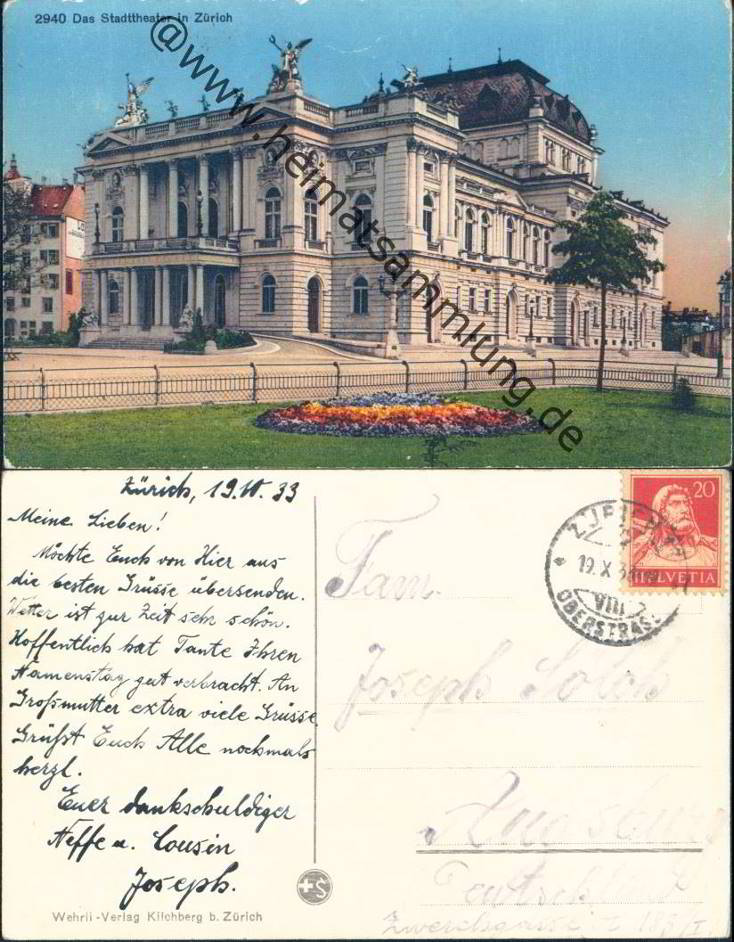 2940 Das Stadttheater in Zürich
@www.heimatsammlung.de
Zürich, 19.10.33
Meine Lieben!
Möchte Euch von Hier aus
die besten Grüsse übersenden.
Wetter ist zur Zeit sehr schön.
Hoffentlich hat Tante Ihren
Namenstag gut verbracht. An
Großmutter extra viele Grüsse.
Grüßt Euch Alle nochmals
herzl.
Euer dankschuldiger
Neffe u. Cousin
Joseph.
Wehrli-Verlag Kilchberg b. Zürich
+S
20
HELVETIA
19.X.33
VIII
OBERSTRASS
Fam.
Joseph
Deutschland
Zwerchgasse